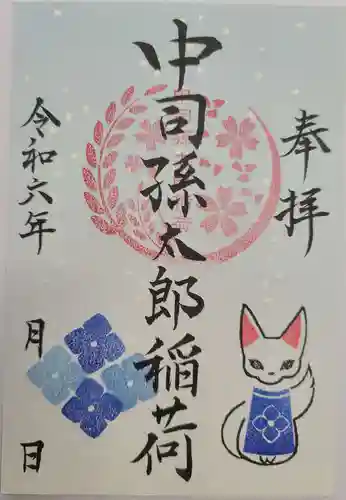 奉拝
中司孫太郎稲荷
令和六年
月
日